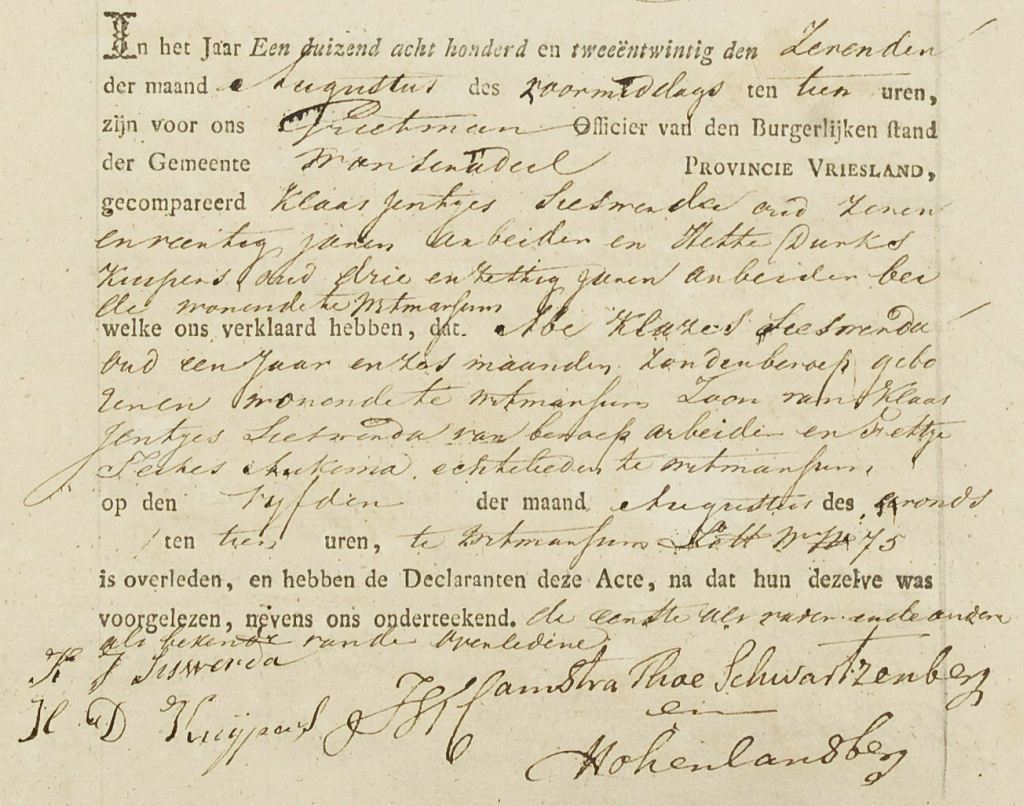 In het Jaar Een duizend acht honderd en tweeëntwintig den Zevenden
der maand Augustus des voormiddags ten tien uren,
zijn voor ons Grietman Officier van den Burgerlijken stand
der Gemeente Wonseradeel PROVINCIE VRIESLAND,
gecompareerd Klaas Jentjes Sieswerda oud zeven
en veertig jaren arbeider en Hette Durks
Kuipers oud drie en zettig jaren arbeider bei
de wonende te Witmarsum
welke ons verklaard hebben, dat. Abe Klazes Sieswerda
oud een Jaar en zes maanden zonder beroep gebo
renen wonende te Witmarsum Zoon van Klaas
Jentjes Sieswerda van beroep arbeider en Fettje
Feikes Aukema echtelieden te Witmarsum,
op den Vyfden der maand Augustus des avonds
ten tien uren, te Witmarsum 75
is overleden, en hebben de Declaranten deze Acte, na dat hun dezelve was
voorgelezen, nevens ons onderteekend. de eerste als vader en de andere
als bekende van de overledene
K J Siswerda
H D Kuijpers
Camstra Thoe Schwartzenberg
en
Hohenlansberg